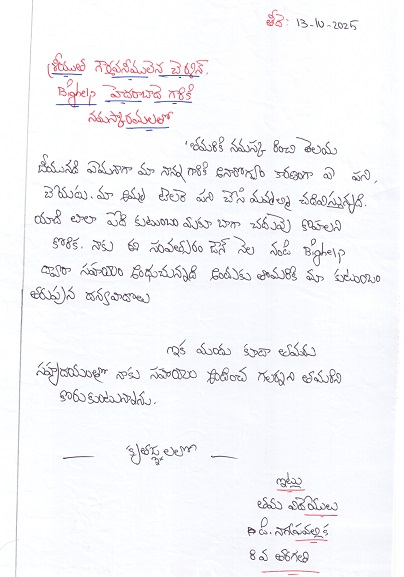 తేది: 13-10-2025
శ్రీయుత గౌరవనీయులైన చైర్మన్.
Bighelp హైదరాబాద్ గారికి
నమస్కారములలో
తమరికి నమస్క రించి తెలియ
చేయునది ఏమనగా మా నాన్న గారికి అనారోగ్యం కారణంగా ఏ పని,
చేయడు. మా అమ్మ టైలర్ పని చేసి మమ్మల్ని చదివిస్తున్నది.
మాది చాలా పేద కుటుంబం మాకూ బాగా చదువు కోవాలని
కోరిక. నాకు ఈ సంవత్సరం జూన్ నెల నుండి Bighelp
ద్వారా సహాయం అందుచున్నది అందుకు తామరికి మా కుటుంబం
తరుపున ధన్యవాదాలు
ఇక ముందు కూడా తమరు
సహృదయంతో నాకు సహాయం అందించ గలరని తమరిని
కోరుకుంటున్నాను.
కృతజ్ఞతలలో
ఇట్లు
తమ విదేయులు
డి. నాగమల్లిక
8 వ తరగతి